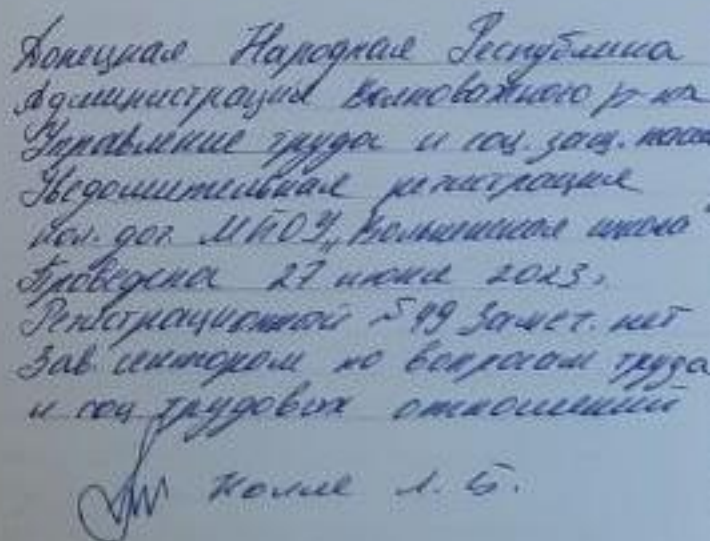 Донецкая Народная Республика
Администрация Волновахского р-на
Управление труда и соц. защ. насел
Уведомительная регистрация
кол. дог. МБОУ „ школа"
Проведена 27 июня 2023г.
Регистрационной №49 Замеч. нет
Зав. сектором по вопросам труда
и соц трудовых отношений
Л. Б.